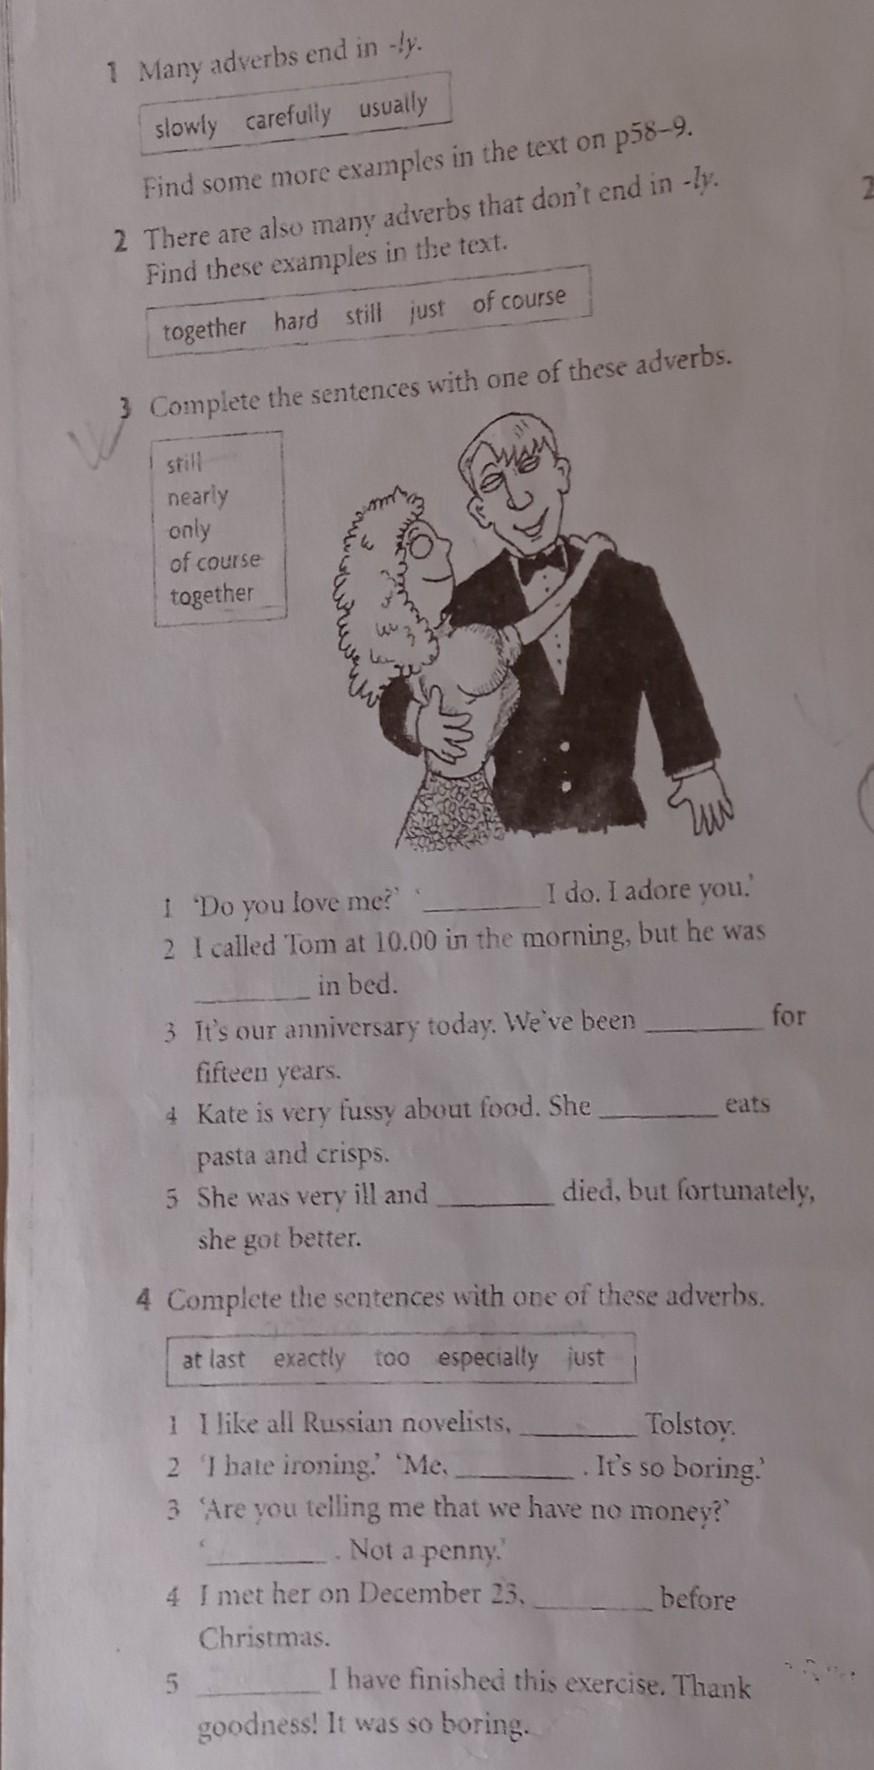 1 Many adverbs end in -ly.
slowly carefully usually
Find some more examples in the text on p58–9.
2 There are also many adverbs that don't end in -ly.
Find these examples in the text.
together hard still just of course
3 Complete the sentences with one of these adverbs.
still
nearly
only
of course
together
1 ‘Do you love me?’ ‘________ I do. I adore you.’
2 I called Tom at 10.00 in the morning, but he was
________ in bed.
3 It's our anniversary today. We've been ________ for
fifteen years.
4 Kate is very fussy about food. She ________ eats
pasta and crisps.
5 She was very ill and ________ died, but fortunately,
she got better.
4 Complete the sentences with one of these adverbs.
at last exactly too especially just
1 I like all Russian novelists, ________ Tolstoy.
2 ‘I hate ironing.’ ‘Me, ________. It's so boring.’
3 ‘Are you telling me that we have no money?’
‘________. Not a penny.’
4 I met her on December 23, ________ before
Christmas.
5 ________ I have finished this exercise. Thank
goodness! It was so boring.
2